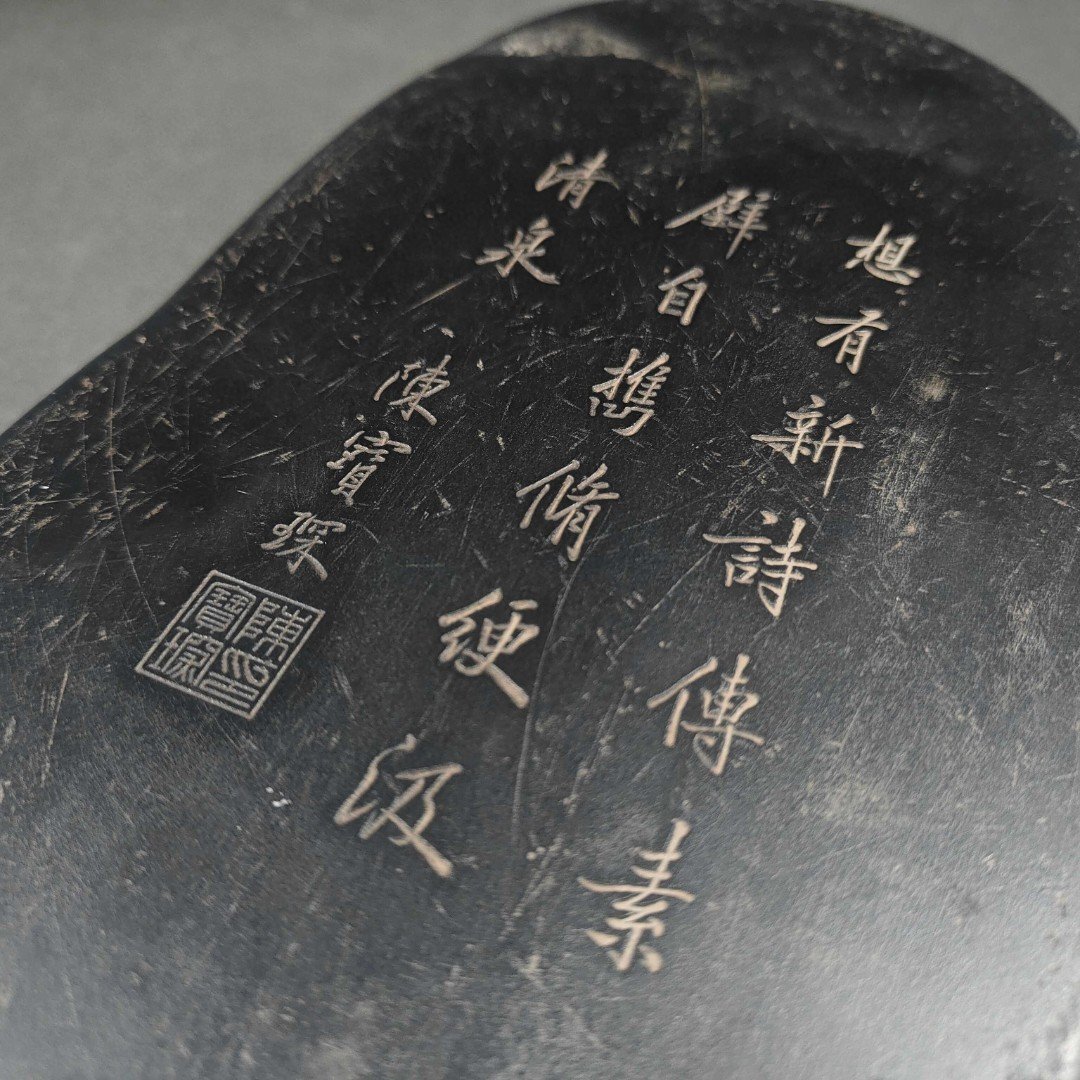 想有新詩傳素
壁自攜脩綆汲
清泉
陳寶琛
陳寶琛印